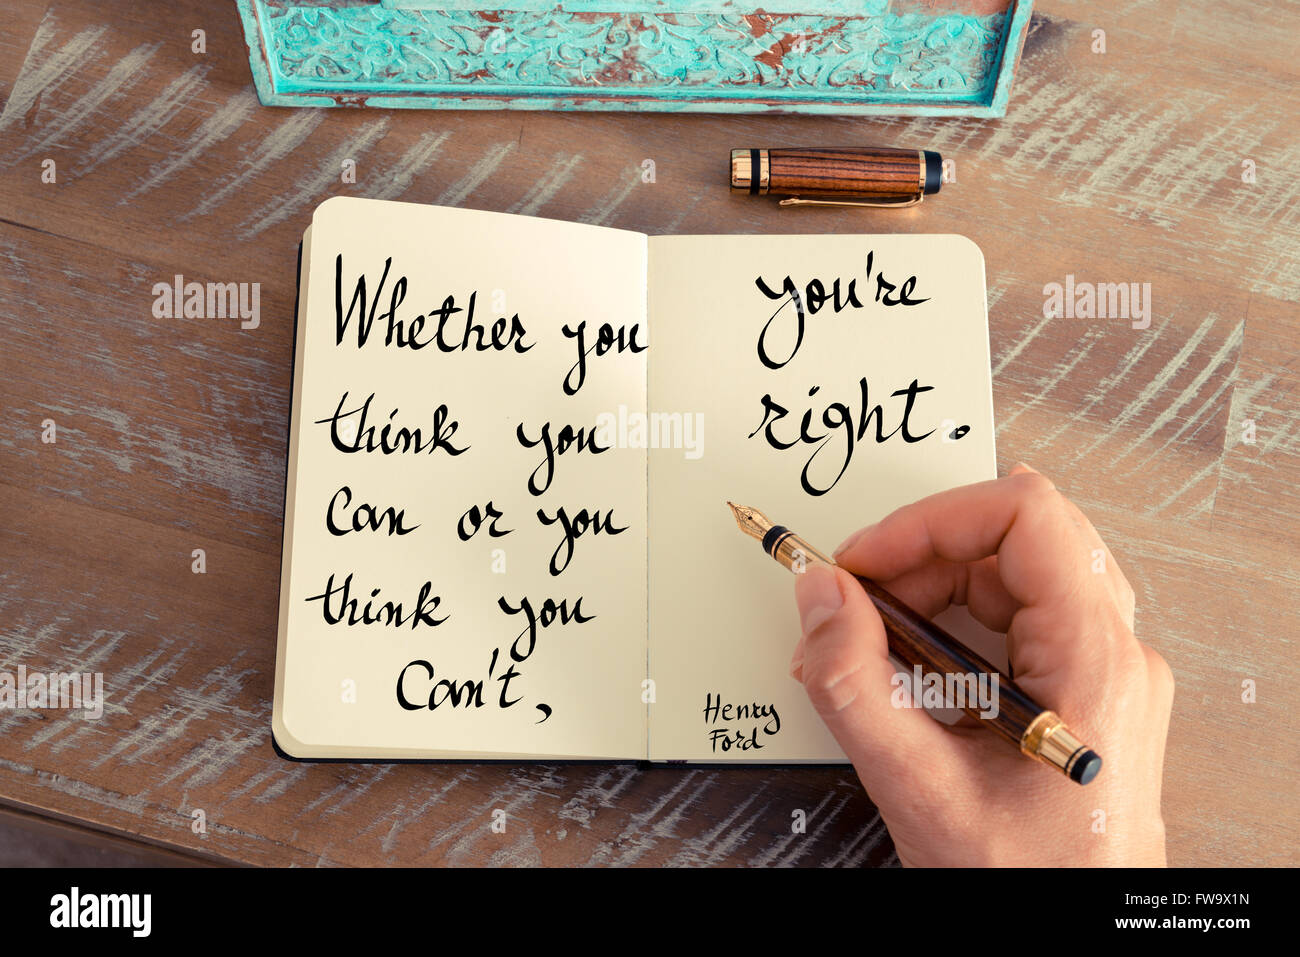 Whether you
think you
can or you
think you
Can't,
you're
right.
Henry
Ford
alamy
alamy
Image ID: FW9X1N
www.alamy.com